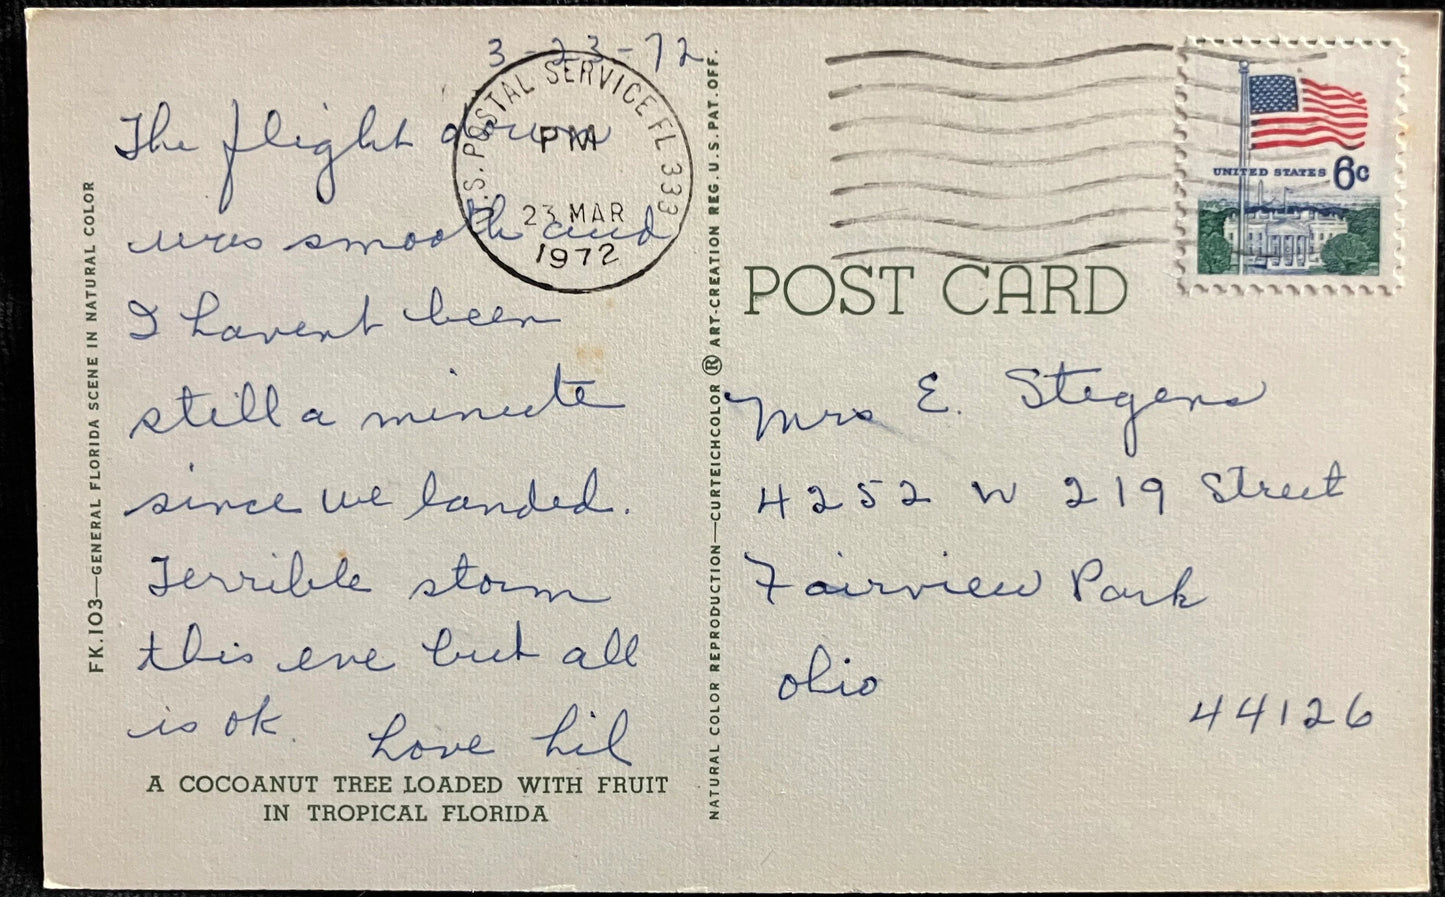 3-23-72
The flight down
was smooth and
I havent been
still a minute
since we landed.
Terrible storm
this eve but all
is ok.
Love Lil
A COCOANUT TREE LOADED WITH FRUIT
IN TROPICAL FLORIDA
FK.103—GENERAL FLORIDA SCENE IN NATURAL COLOR
U.S. POSTAL SERVICE FL 333
PM
23 MAR
1972
NATURAL COLOR REPRODUCTION—CURTEICHCOLOR ® ART-CREATION REG. U.S. PAT. OFF.
UNITED STATES 6c
POST CARD
Mrs E. Stegens
4252 W 219 Street
Fairview Park
Ohio
44126